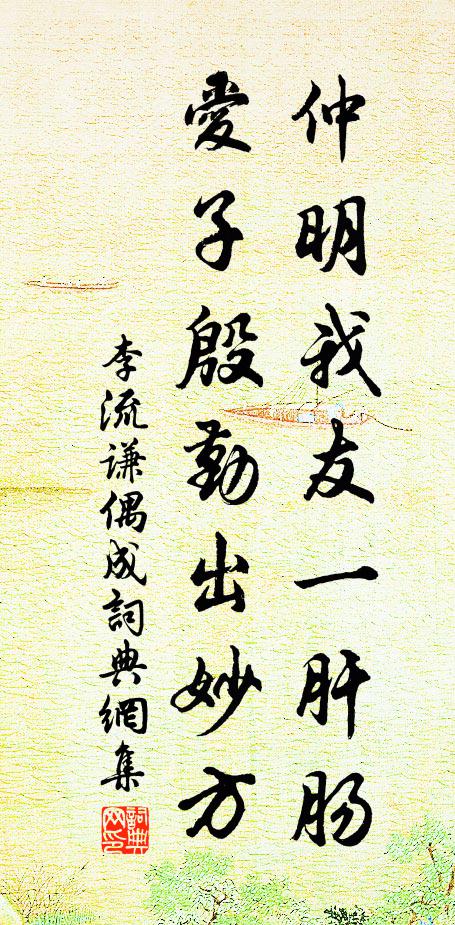 仲明我友一肝肠
愛子殷勤出妙方
李流谦偶成詞典網集
詞典网印